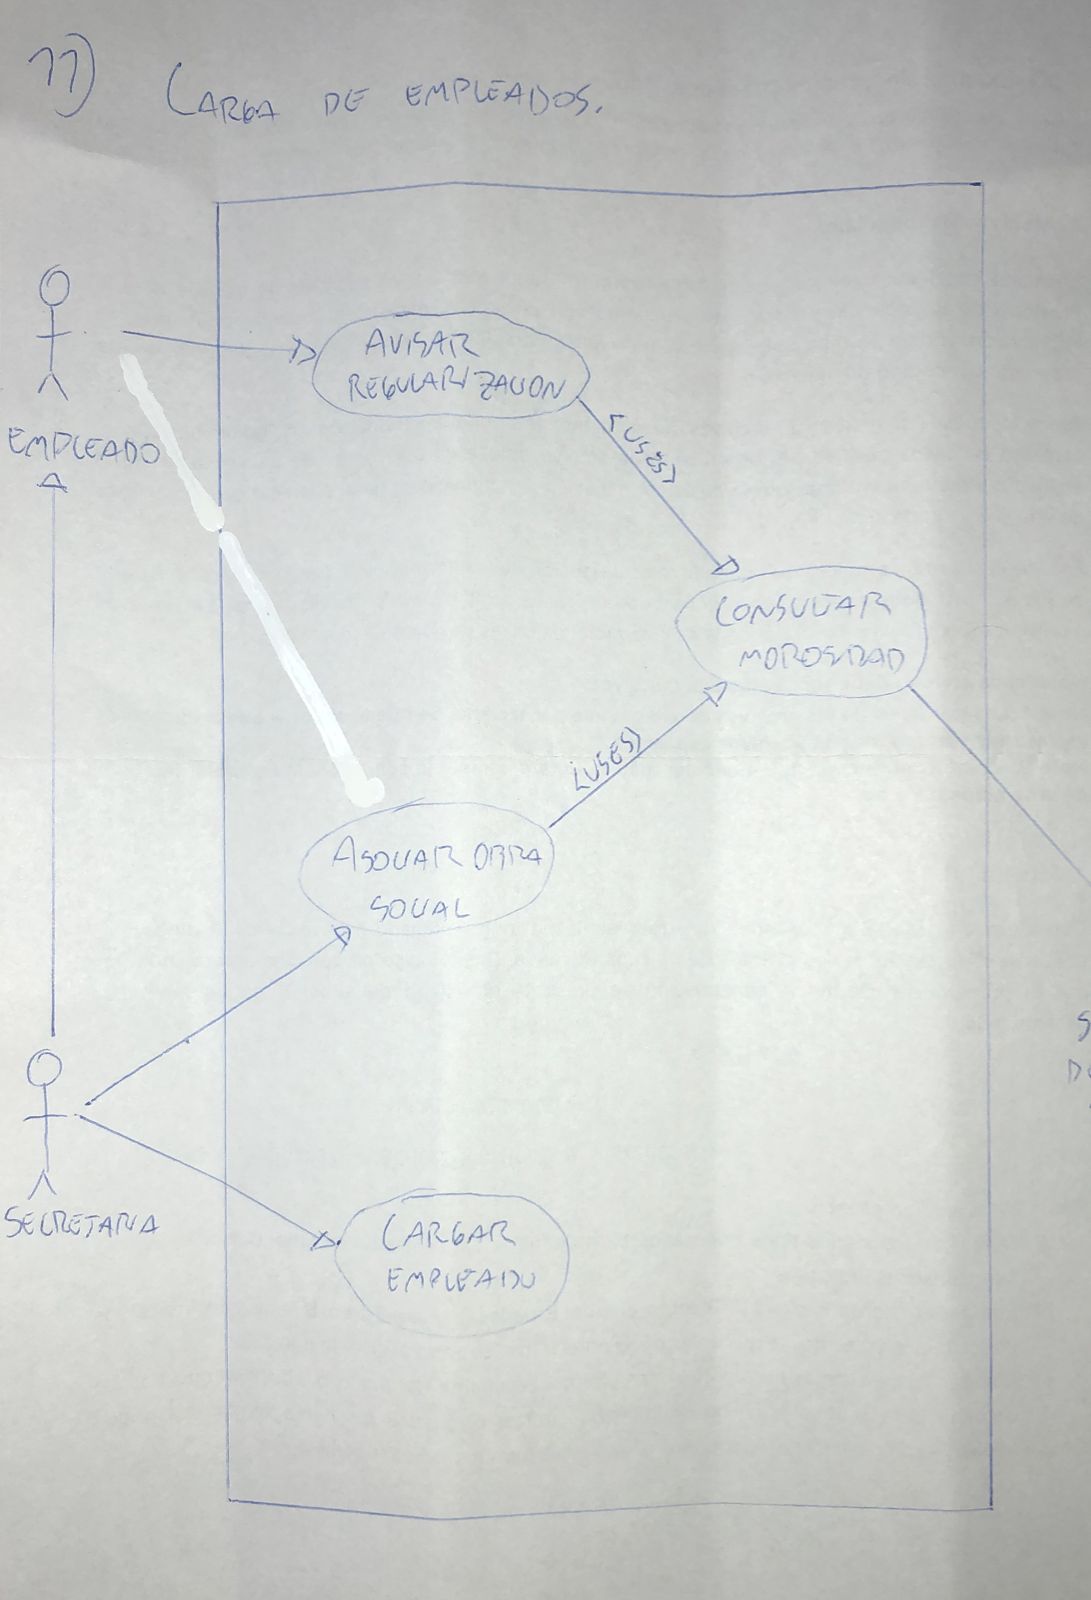 11) CARGA DE EMPLEADOS.
AVISAR
REGULARIZACION
EMPLEADO
<USES>
CONSULTAR
MOROSIDAD
<USES>
ASOCIAR OBRA
SOCIAL
SECRETARIA
CARGAR
EMPLEADO